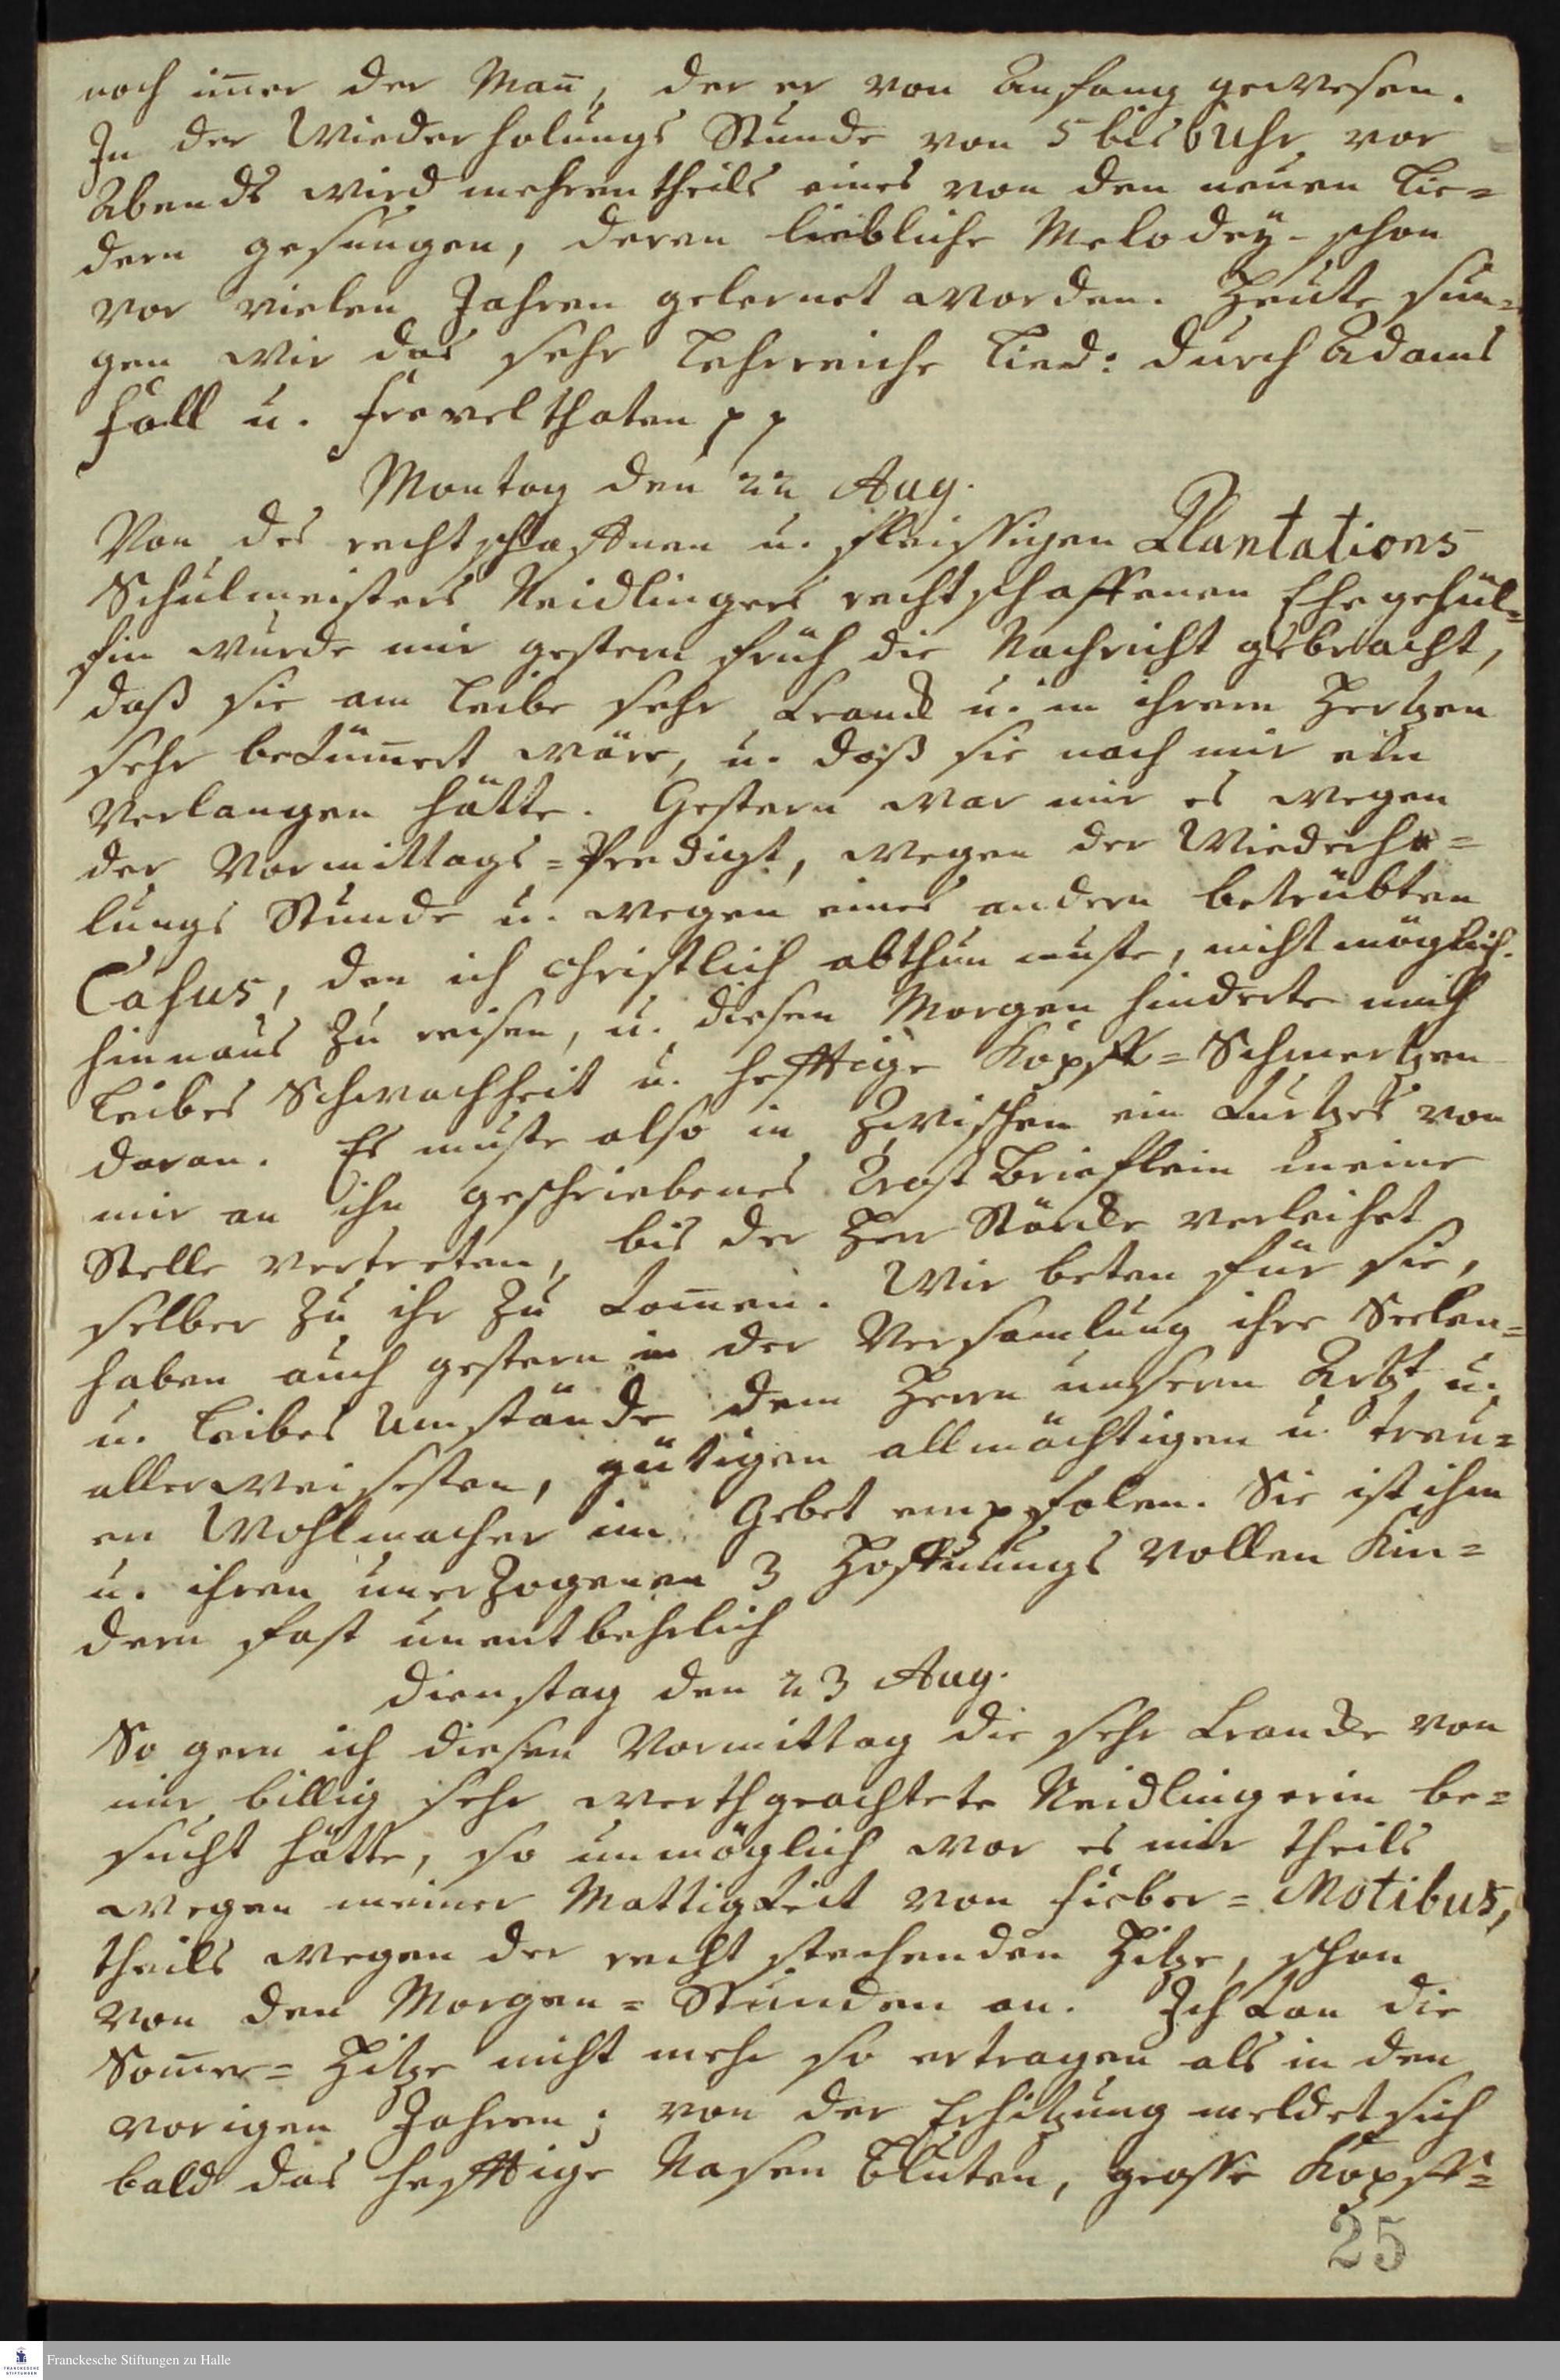 noch im̅er der Man̅, der er von Anfang gewesen.
In der Wiederholungs Stunde von 5 bis 6 Uhr vor
Abends wird mehrentheils eines von den neuen Lie=
dern gesungen, deren liebliche Melodey schon
vor vielen Jahren gelernet worden. Heute sun=
gen wir das sehr lehrreiche Lied: Durch Adams
Fall u. Frevelthaten pp
Montag den 22 Aug.
Von des rechtschaffnen u. fleissigen Plantations
Schulmeisters Neidlingers rechtschaffenen Ehegehül=
fin wurde mir gestern früh die Nachricht gebracht,
daß sie am Leibe sehr kranck u. in ihrem Hertzen
sehr beküm̅ert wäre, u. daß sie nach mir ein
Verlangen hätte. Gestern war mir es wegen
der Vormittags=Predigt, wegen der Wiederho=
lungs Stunde u. wegen eines andern betrübten
Casus, den ich christlich abthun muste, nicht möglich.
hinnaus zu reisen, u. diesen Morgen hinderte mich
Leibes Schwachheit u. hefftige Kopff=Schmertzen
daran. Es muste also in zwischen ein kurtzes von
mir an ihn geschriebenes Trost Brieflein meine
Stelle vertreten, bis der Herr Stärcke verleihet
selber zu ihr zu kom̅en. Wir beten für sie,
haben auch gestern in der Versamlung ihre Seelen=
u. Leibes Umstände dem Herrn unserm Artzt u.
allerweisesten, gütigen allmächtigen u. treu=
en Wohlmacher im Gebet empfolen. Sie ist ihm
u. ihren unerzogenen 3 Hoffnungs vollen Kin=
dern fast unentbehrlich
Dienstag den 23 Aug.
So gern ich diesen Vormittag die sehr krancke von
mir billig sehr werthgeachtete Neidlingerin be=
sucht hätte, so unmöglich war es mir theils
wegen meiner Mattigkeit von Fieber=Motibus,
theils wegen der recht stechenden Hitze, schon
von den Morgen=Stunden an. Ich kan die
Som̅er=Hitze nicht mehr so ertragen als in den
vorigen Jahren; von der Erhitzung meldet sich
bald das hefftige Nasen Bluten, grosse Kopff=
25
Franckesche Stiftungen zu Halle
FRANCKESCHE STIFTUNGEN